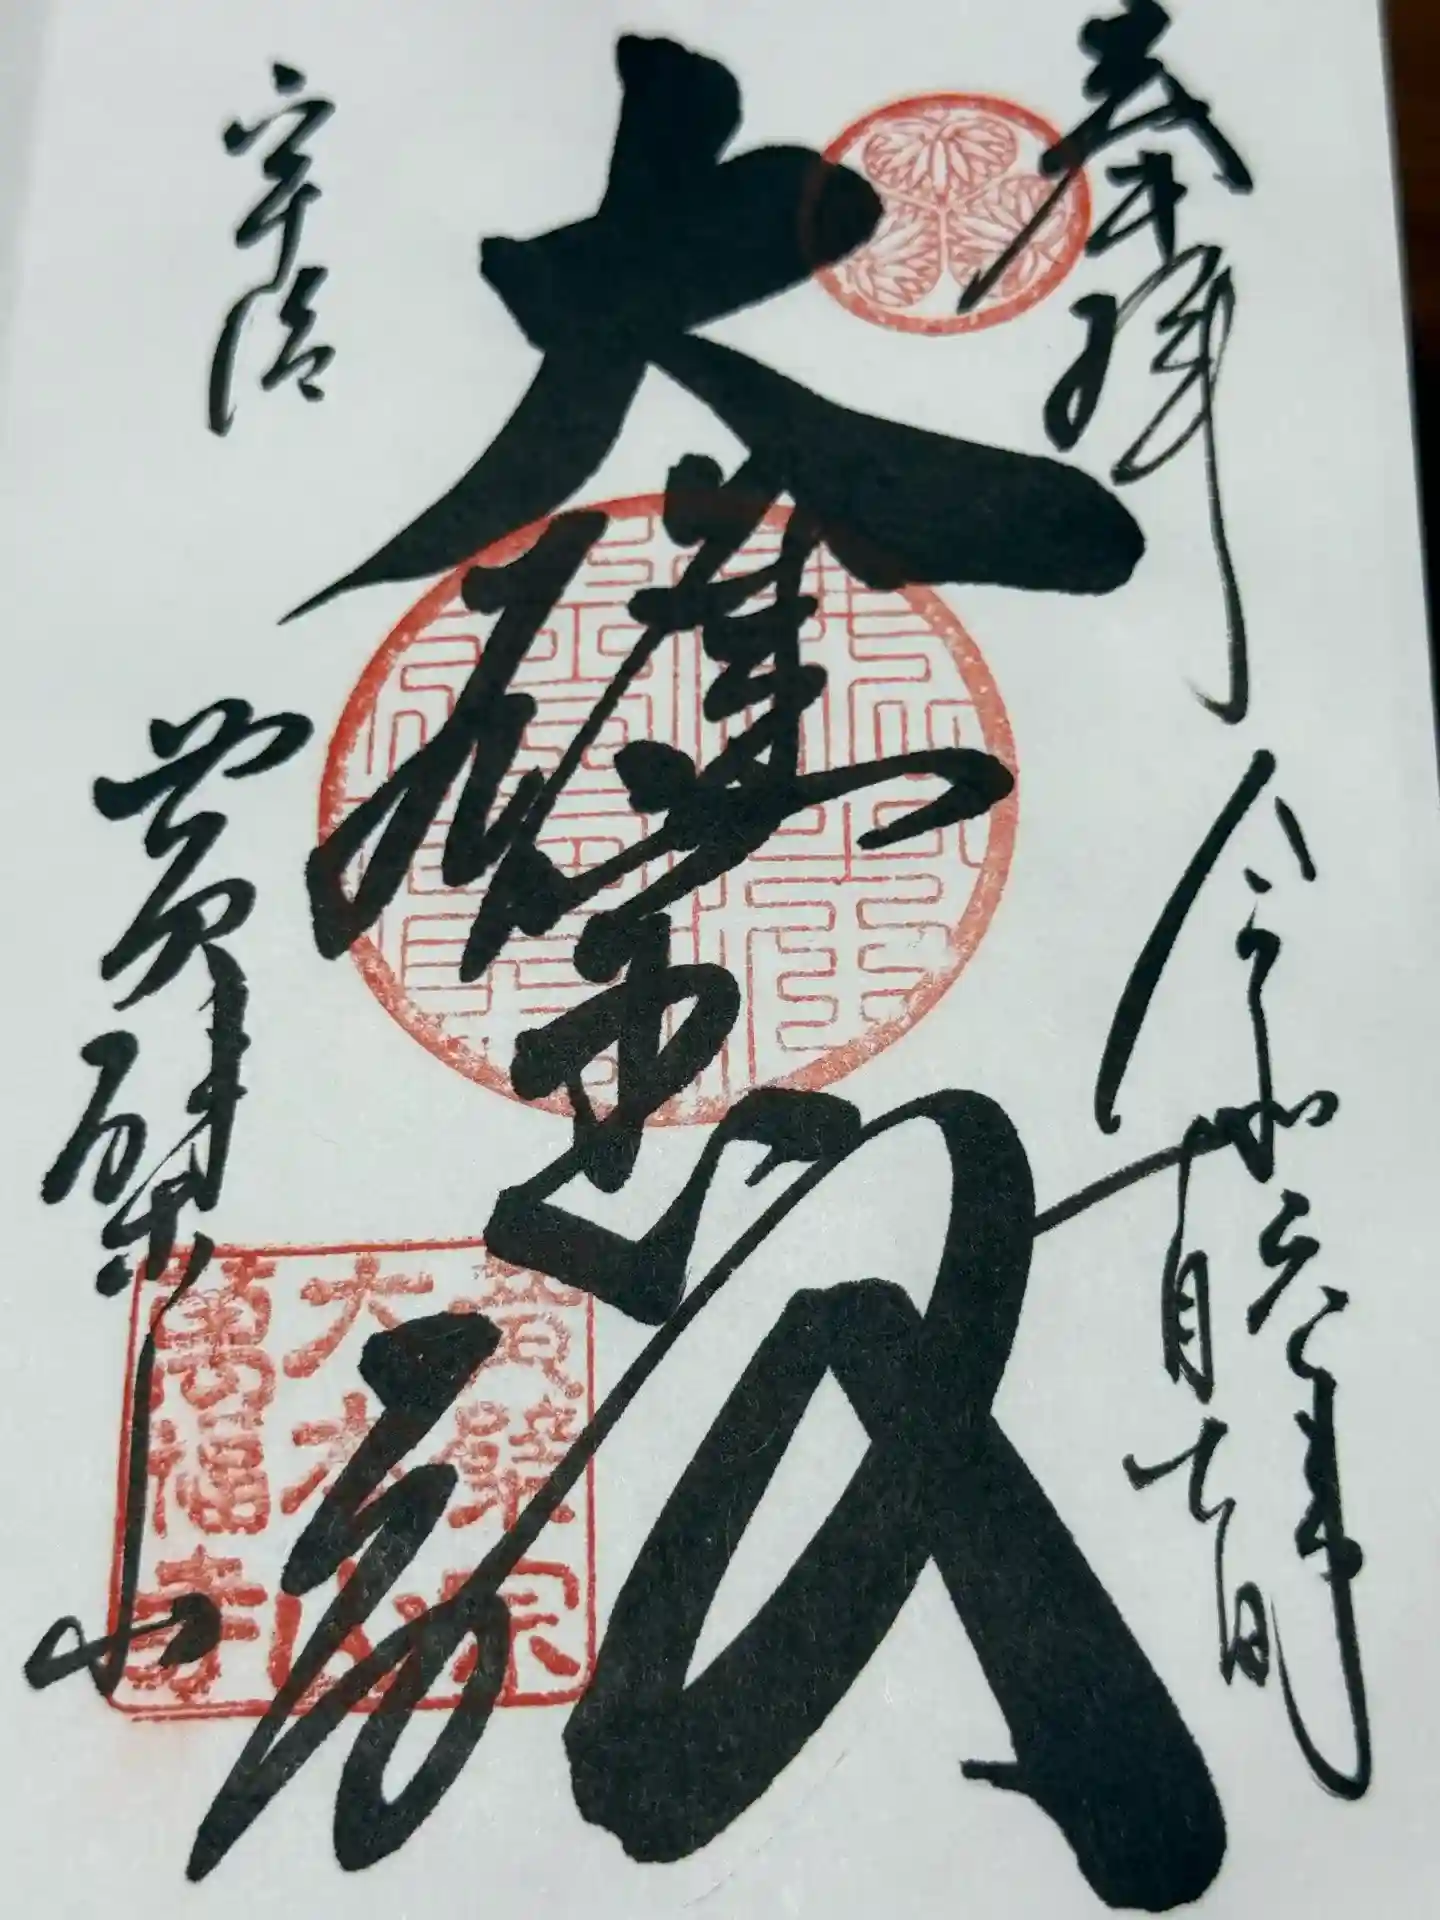 奉拝
令和六年
十月七日
大雄寳殿
宇治
黄檗山
黄檗宗
大本山
萬福寺